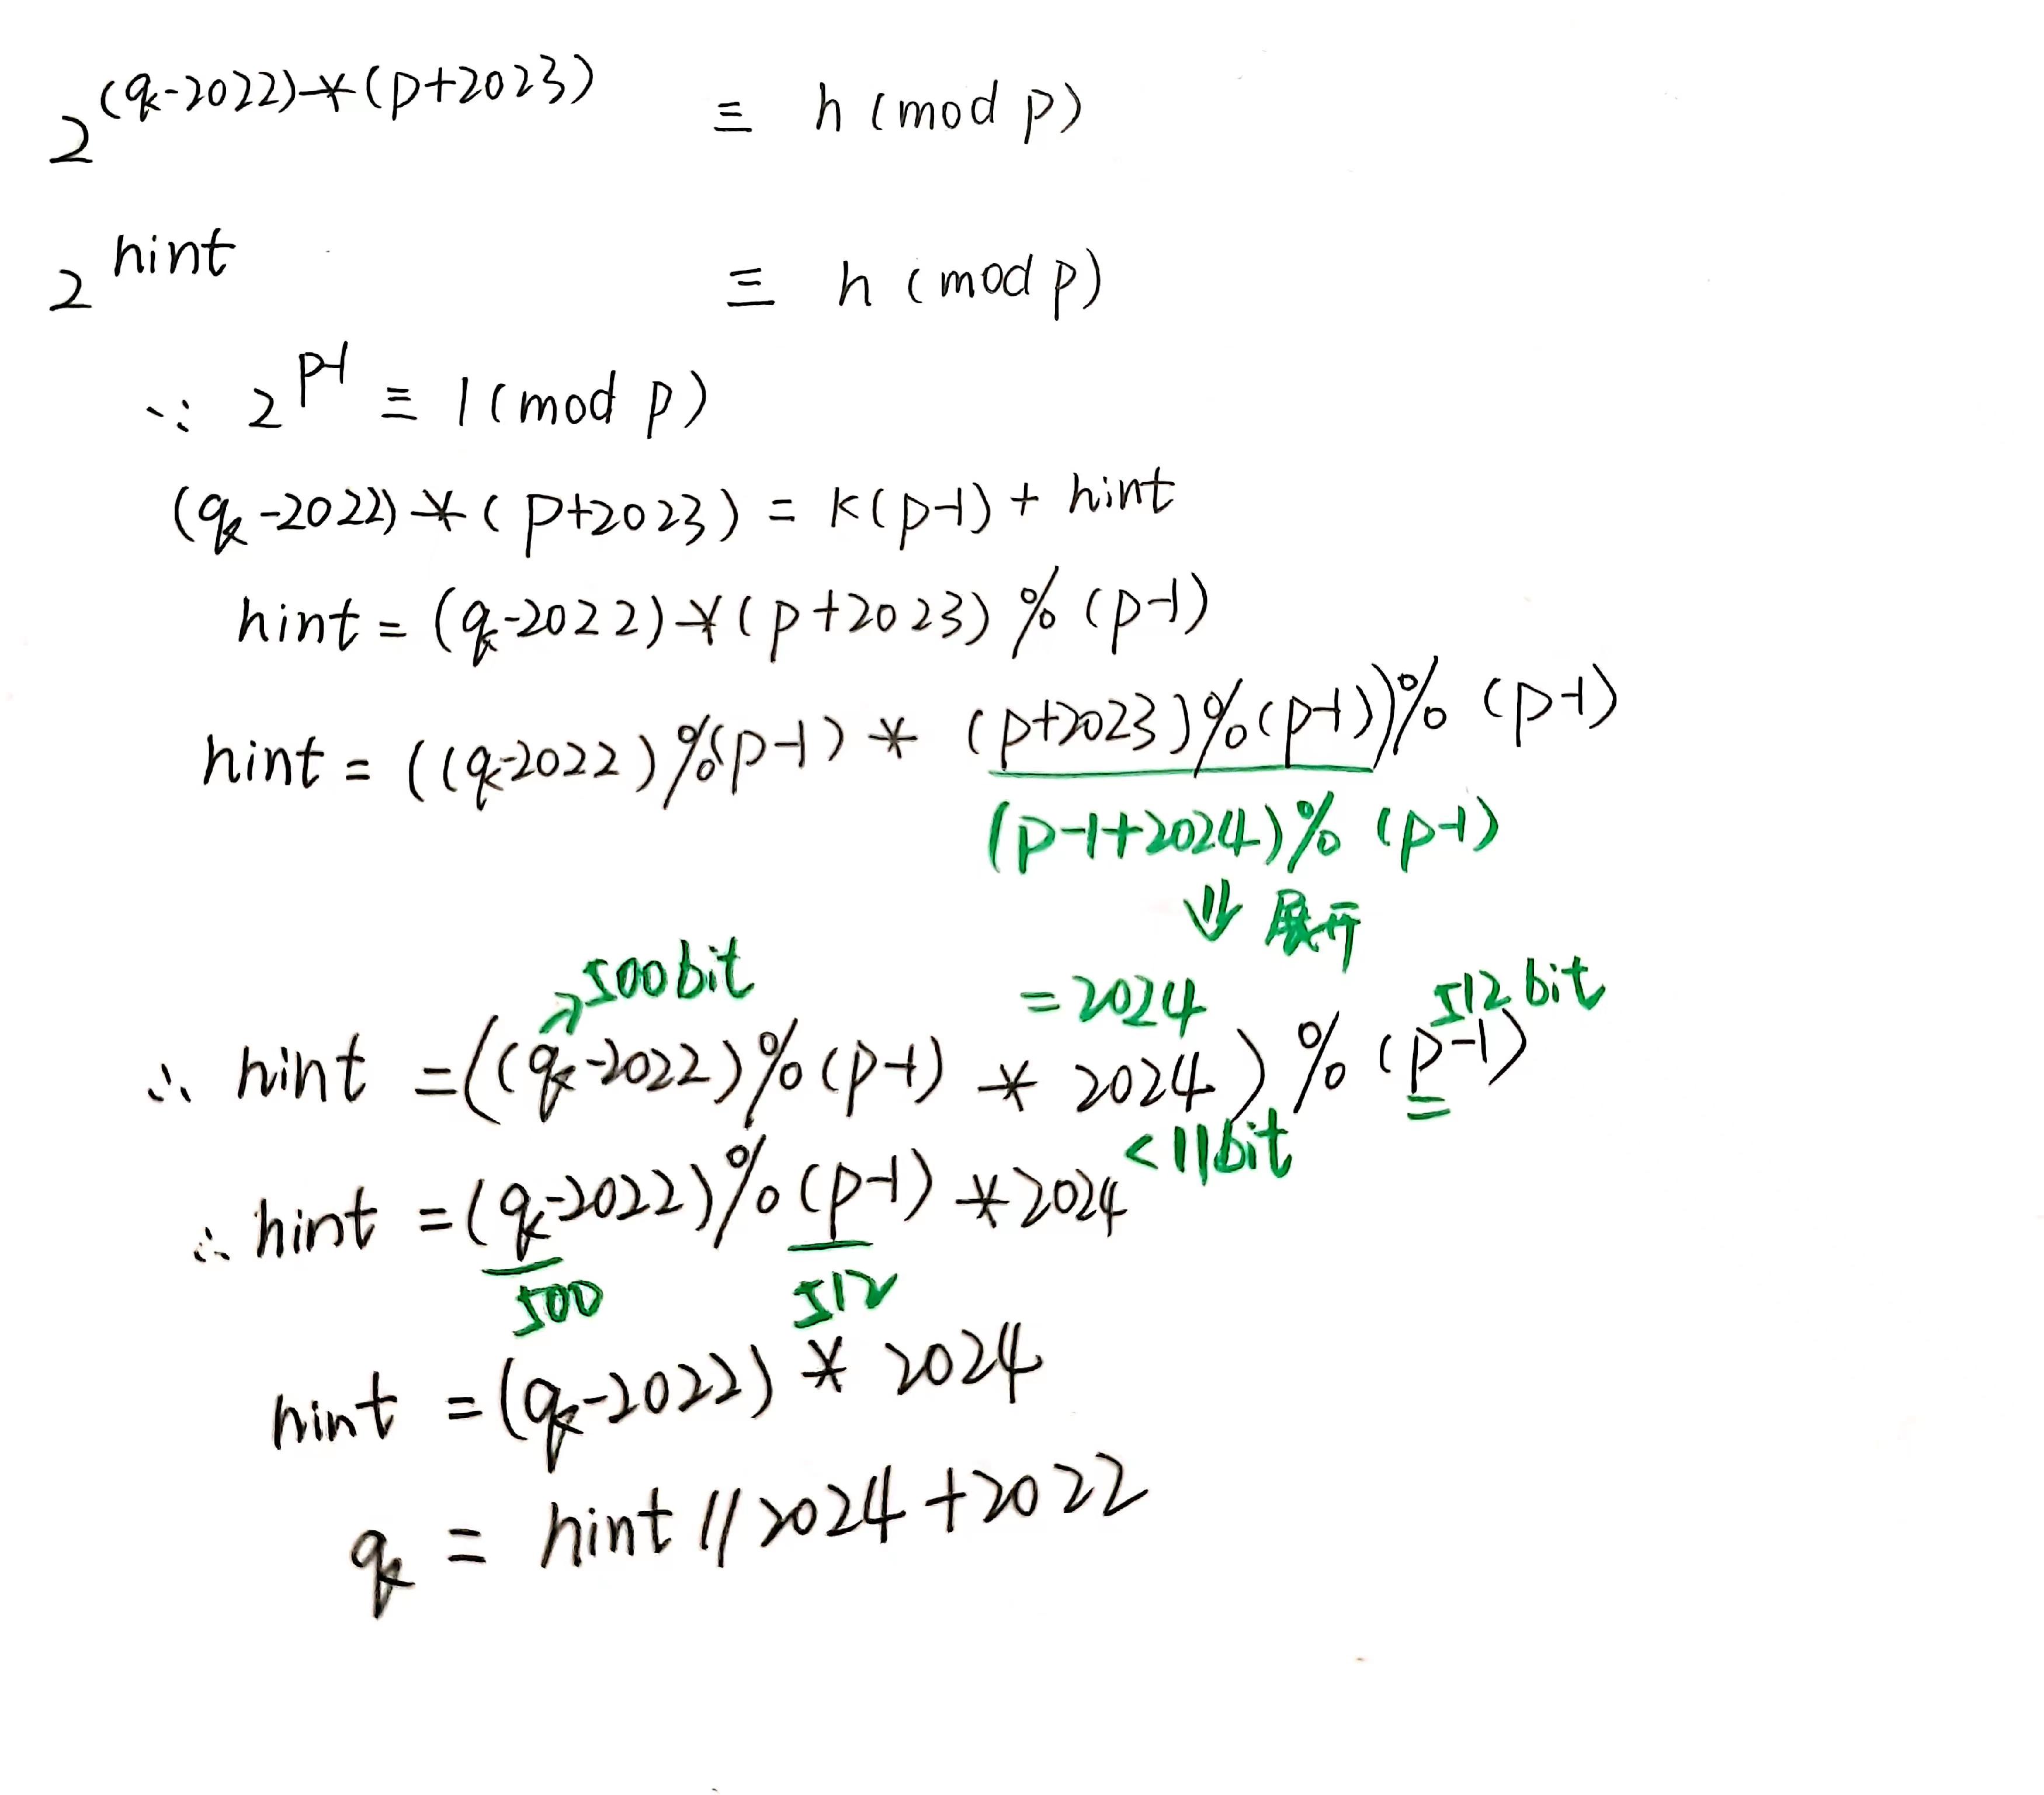 2^(q-2022)*(p+2023) ≡ h (mod p)
2^hint ≡ h (mod p)
∵ 2^p-1 ≡ 1 (mod p)
(q-2022)*(p+2023) = k(p-1) + hint
hint = (q-2022)*(p+2023) % (p-1)
hint = ((q-2022)%(p-1) * (p+2023)%(p-1))% (p-1)
(p-1+2024)% (p-1)
⇓ 展开
500bit = 2024 512 bit
∴ hint = ((q-2022)%(p-1) * 2024) % (p-1)
<11bit
∴ hint = (q-2022)%(p-1) *2024
500 512
hint = (q-2022) * 2024
q = hint//2024+2022